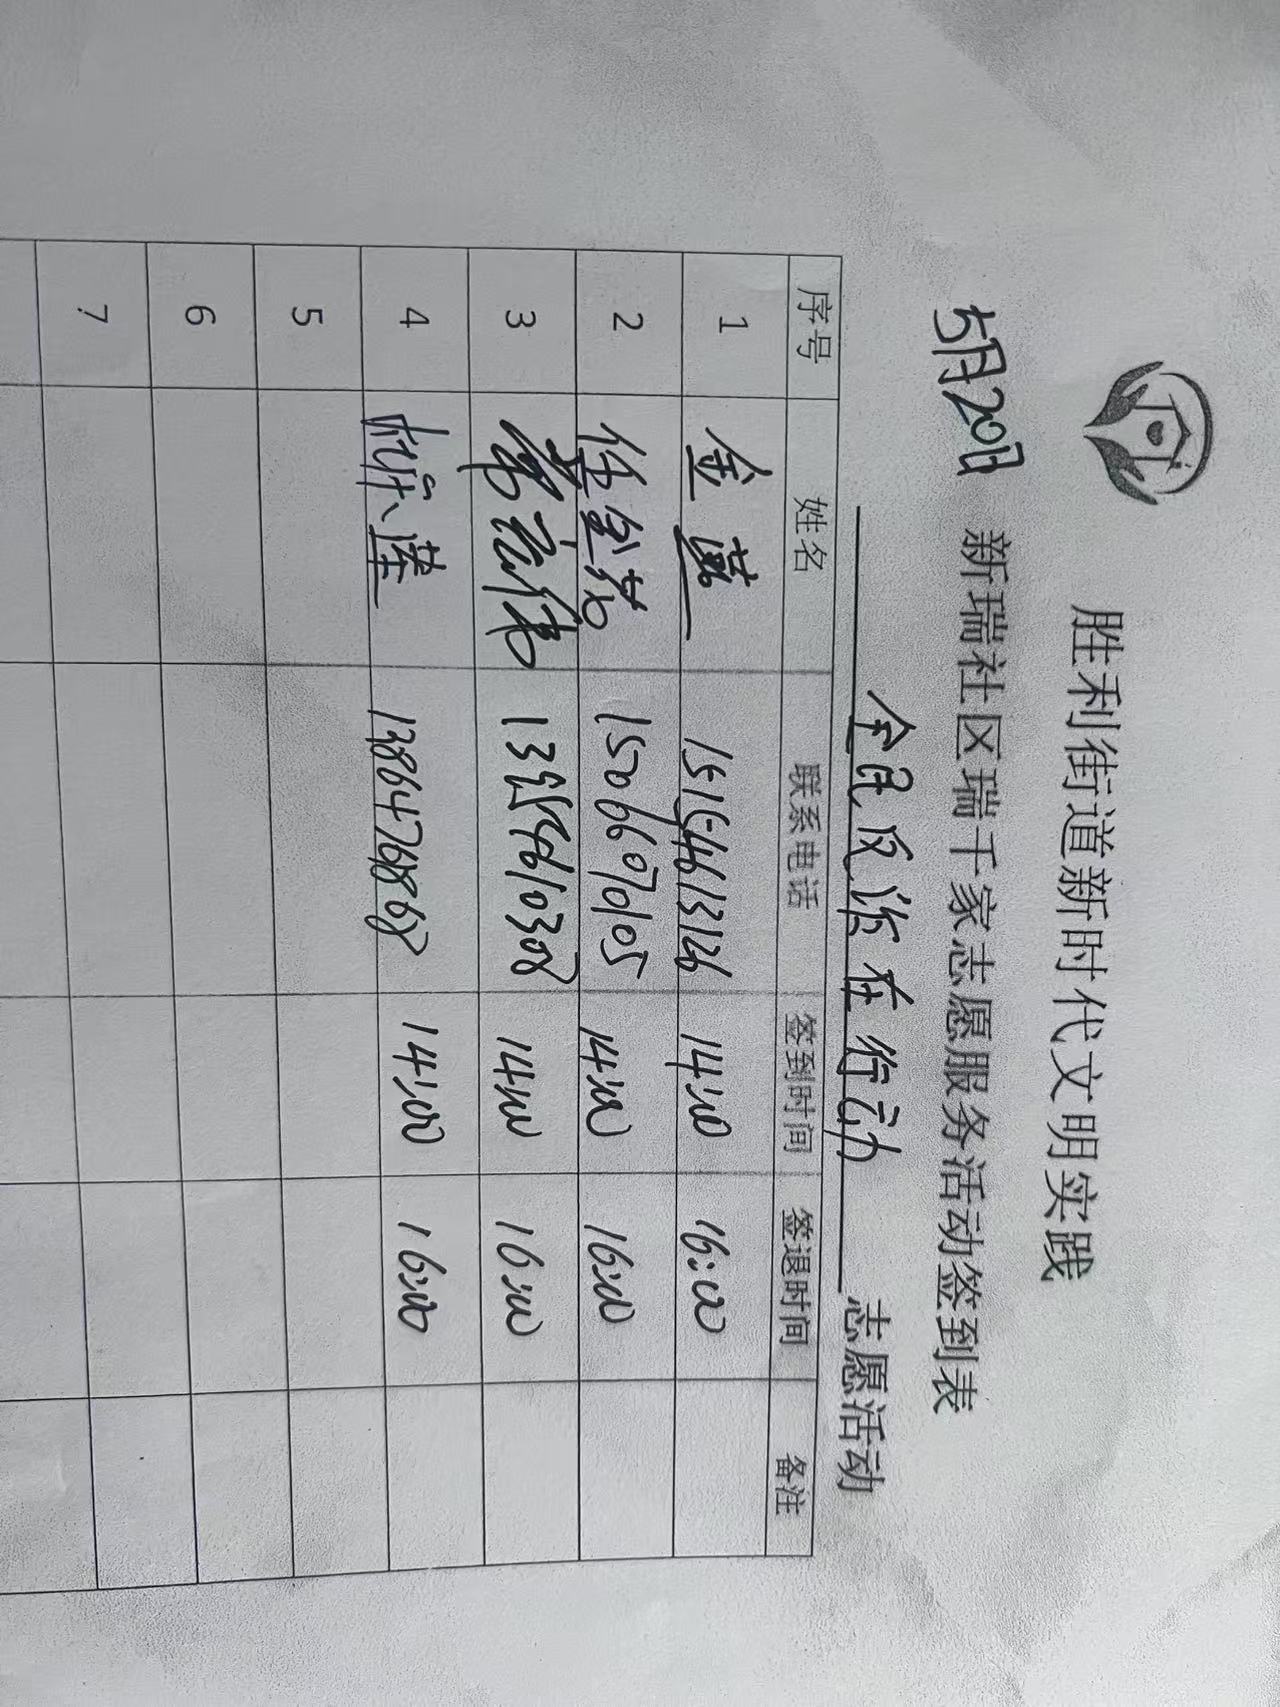 胜利街道新时代文明实践
5月20日 新瑞社区瑞千家志愿服务活动签到表
全民反诈在行动 志愿活动
序号 姓名 联系电话 签到时间 签退时间 备注
1 金燕 15154613126 14:00 16:00
2 任金芬 15066070105 14:00 16:00
3 13954610308 14:00 16:00
4 13864768868 14:00 16:00
5
6
7